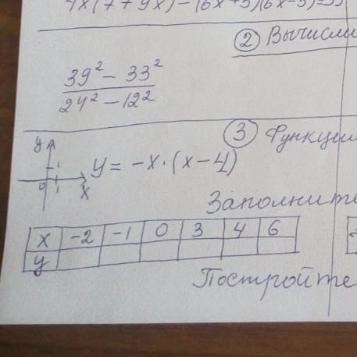 4x(7+9x)-(6x+5)(6x-5)=
② Вычисли
39² - 33²
24² - 12²
③ Функци
y
0 1 x
y = -x·(x-4)
Заполните
x -2 -1 0 3 4 6
y
Постройте